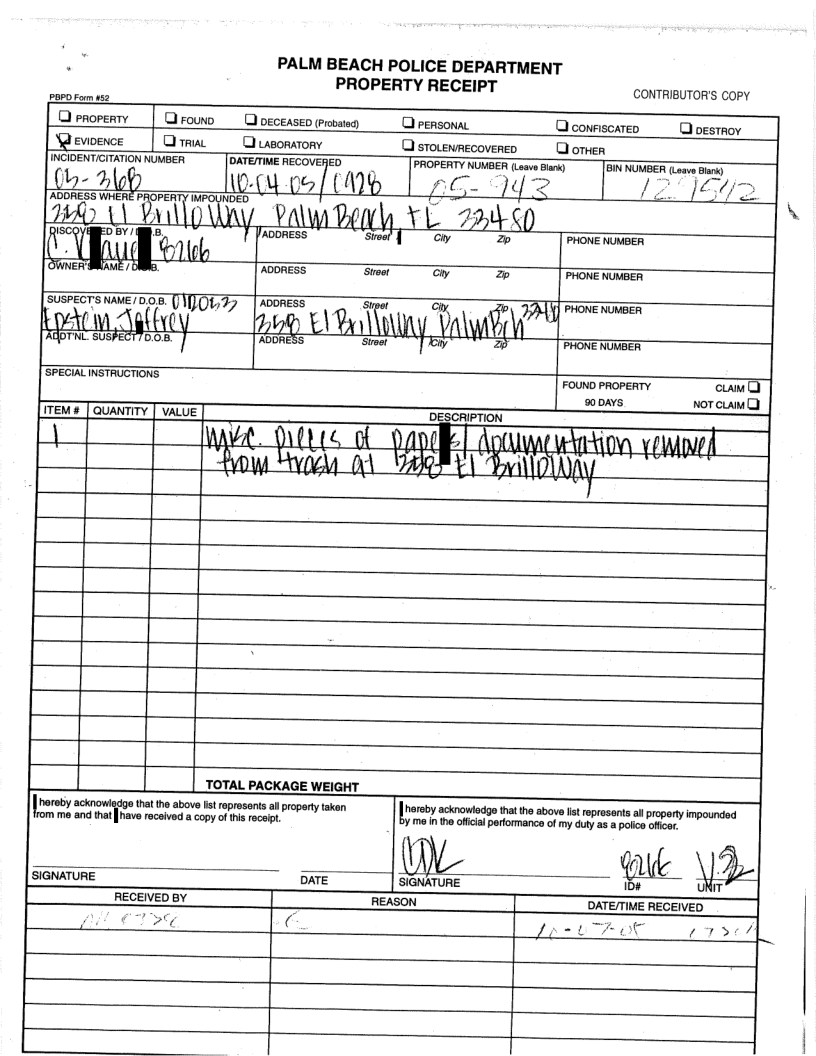 PALM BEACH POLICE DEPARTMENT
PROPERTY RECEIPT
PBPD Form #52
CONTRIBUTOR'S COPY
PROPERTY FOUND DECEASED (Probated) PERSONAL CONFISCATED DESTROY
EVIDENCE TRIAL LABORATORY STOLEN/RECOVERED OTHER
INCIDENT/CITATION NUMBER DATE/TIME RECOVERED PROPERTY NUMBER (Leave Blank) BIN NUMBER (Leave Blank)
05-368 10-04-05/0928 05-943
ADDRESS WHERE PROPERTY IMPOUNDED
358 El Brillo Way Palm Beach FL 33480
DISCOVERED BY / D.O.B. ADDRESS Street City Zip PHONE NUMBER
OWNER'S NAME / D.O.B. ADDRESS Street City Zip PHONE NUMBER
SUSPECT'S NAME / D.O.B. ADDRESS Street City Zip PHONE NUMBER
Epstein, Jeffrey 358 El Brillo Way Palm Bch
ADDT'NL. SUSPECT / D.O.B. ADDRESS Street City Zip PHONE NUMBER
SPECIAL INSTRUCTIONS
FOUND PROPERTY CLAIM
90 DAYS NOT CLAIM
ITEM # QUANTITY VALUE DESCRIPTION
1 misc. pieces of papers/documentation removed
from trash at 358 El Brillo Way
TOTAL PACKAGE WEIGHT
I hereby acknowledge that the above list represents all property taken
from me and that I have received a copy of this receipt.
I hereby acknowledge that the above list represents all property impounded
by me in the official performance of my duty as a police officer.
SIGNATURE DATE SIGNATURE ID# UNIT
RECEIVED BY REASON DATE/TIME RECEIVED